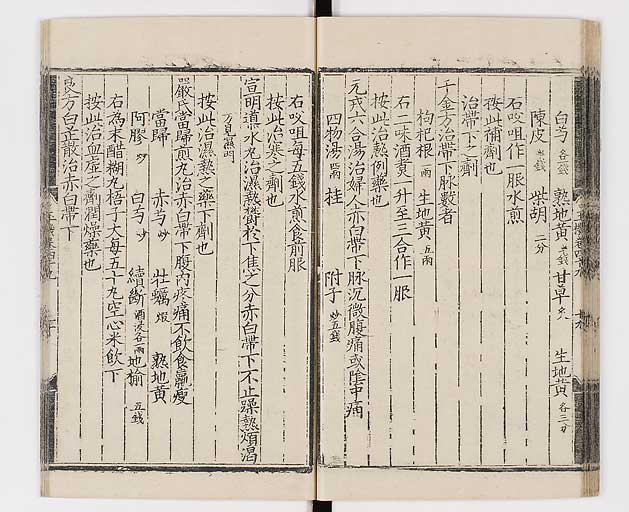 白芍 各錢 熟地黃 半錢 甘草 炙 生地黃 各三分
陳皮 半錢 柴胡 二分
右㕮咀作一服水煎
按此補劑也
治帶下之劑
千金方治帶下脉數者
枸杞根 一兩 生地黃 五兩
右二味酒貢一斗至三合作一服
按此治熱例藥也
元戎六合湯治婦人赤白帶下脉沉微腹痛或陰中痛
四物湯 四兩 桂 附子 炒五錢
右㕮咀每五錢水煎食前服
按此治寒之劑也
宣明導水丸治濕熱欝於下焦之分赤白帶下不止躁熱煩渴
方見濕門
按此治濕熱之藥下劑也
嚴氏當歸煎丸治赤白帶下腹內疼痛不飲食羸瘦
當歸 赤芍 炒 牡蠣 煆 熟地黃
阿膠 炒 白芍 炒 續斷 酒浸各一兩 地榆 五錢
右為末醋糊丸梧子大每五十丸空心米飲下
按此治血虛之劑潤燥藥也
良方白芷散治赤白帶下